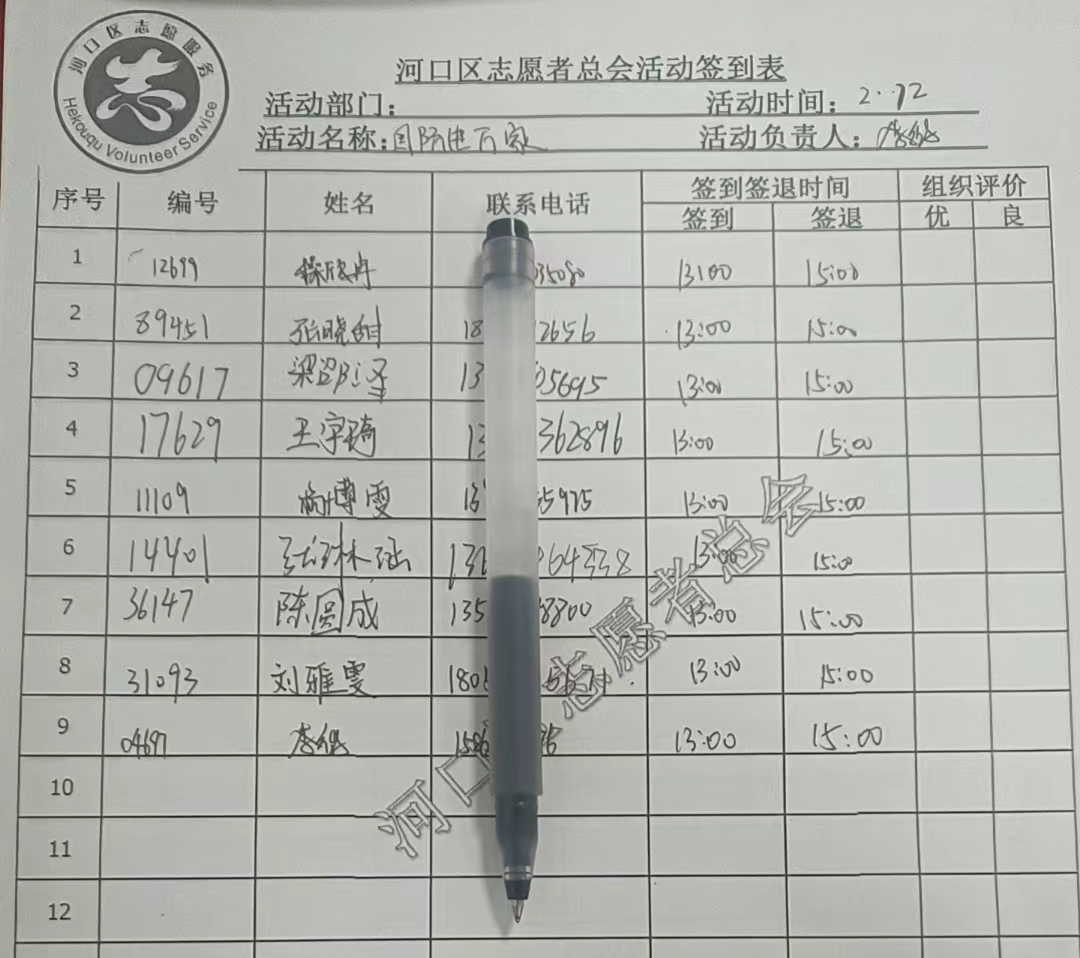 河口区志愿服务
Hekouqu Volunteer Service
河口区志愿者总会活动签到表
活动部门: 活动时间: 2.12
活动名称: 国防进万家 活动负责人:
序号 编号 姓名 联系电话 签到签退时间 组织评价
签到 签退 优 良
1 12699 35080 13:00 15:00
2 89451 18 2656 13:00 15:00
3 09617 13 05695 13:00 15:00
4 17629 王宇琦 13 362896 13:00 15:00
5 11109 博雯 13 55975 13:00 15:00
6 14401 张林涵 13 64338 13:00 15:00
7 36147 陈圆成 135 38800 13:00 15:00
8 31093 刘雅雯 180 13:00 15:00
9 04697 158 13:00 15:00
10
11
12
河口区志愿者总会